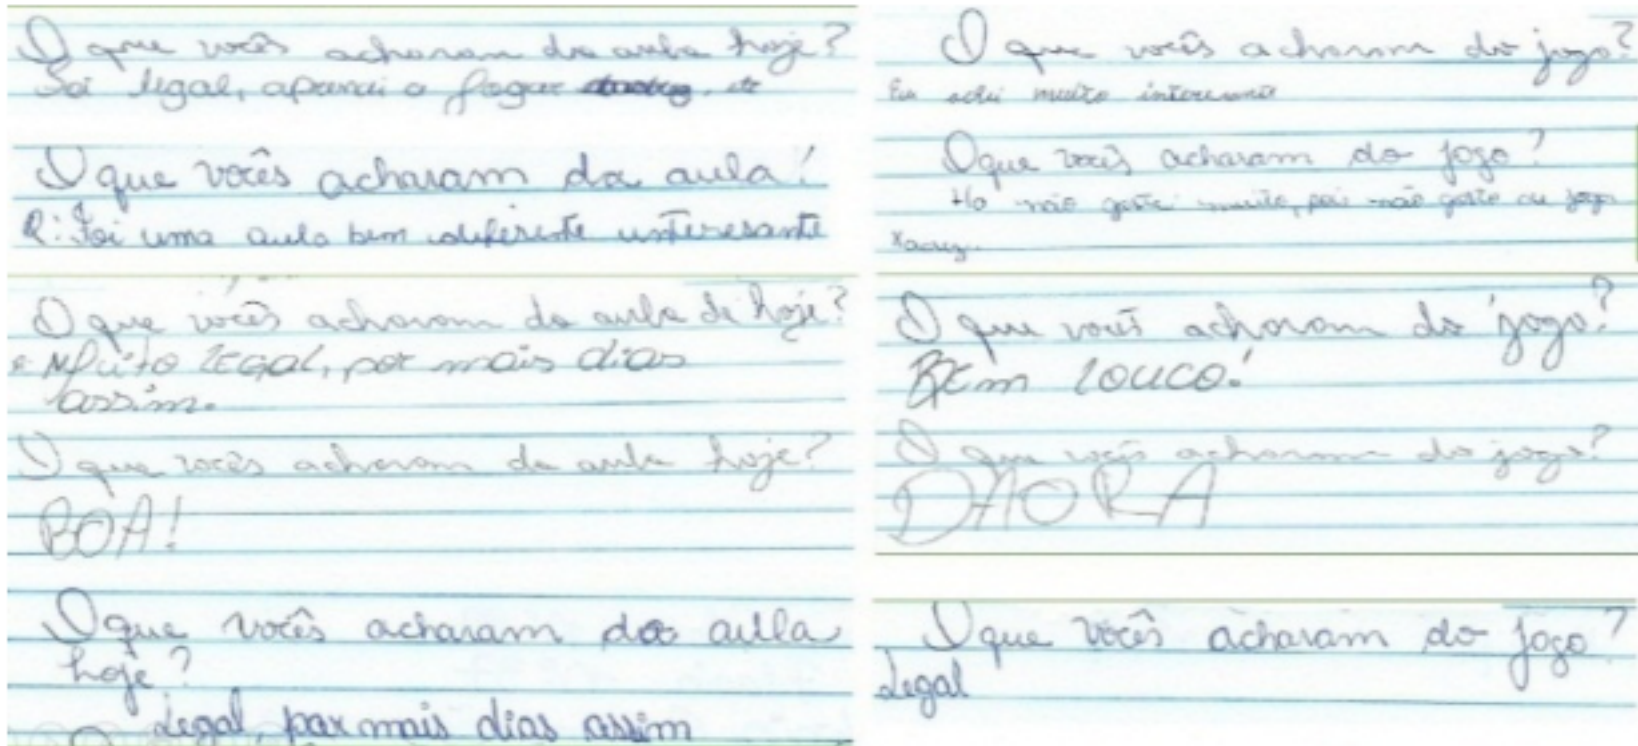 O que vocês acharam da aula hoje?
Foi legal, aprendi a jogar
O que vocês acharam da aula!
R: Foi uma aula bem diferente interesante
O que vocês acharam da aula de hoje?
Muito LEGAL, por mais dias
assim.
O que vocês acharam da aula hoje?
BOA!
O que vocês acharam da aula
hoje?
Legal, por mais dias assim
O que vocês acharam do jogo?
Eu achei muito
O que vocês acharam do jogo?
não gostei muito, não jogo
O que vocês acharam do jogo?
BEm LOUCO!
O que vocês acharam do jogo?
DAORA
O que vocês acharam do jogo?
Legal